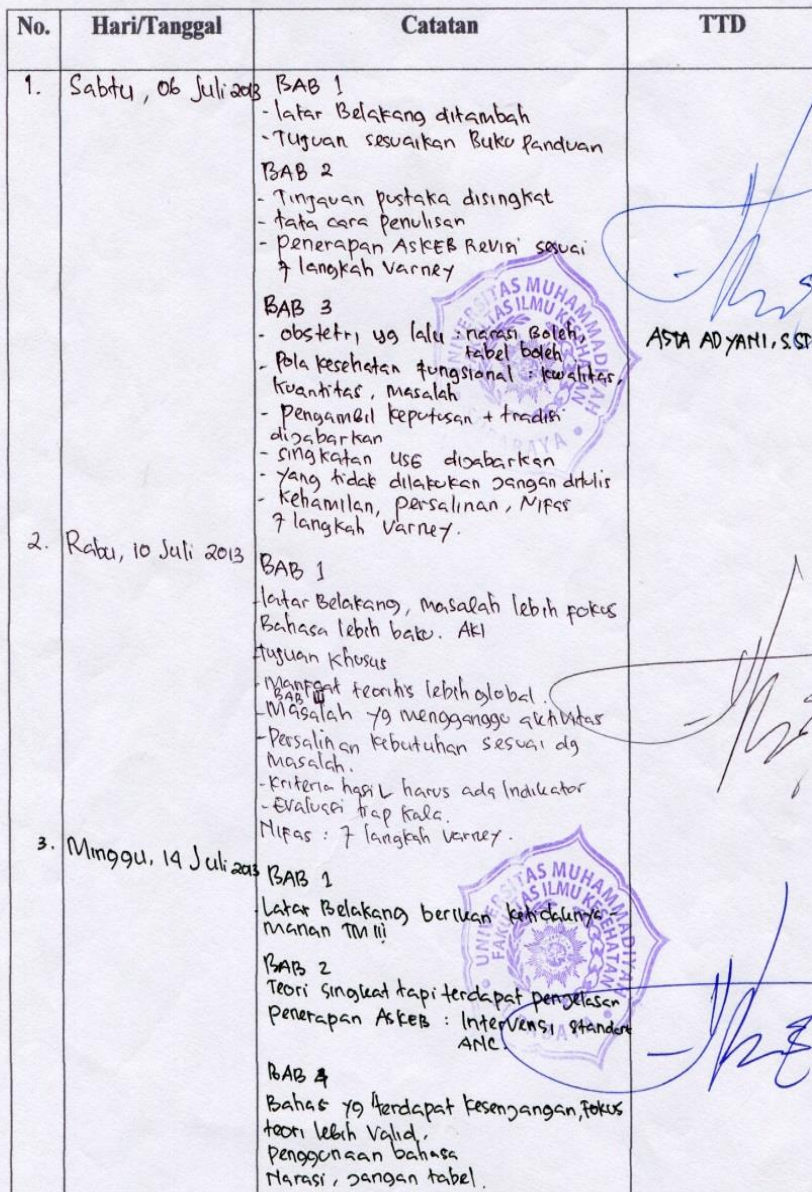 No. Hari/Tanggal Catatan TTD
1. Sabtu, 06 Juli 2013 BAB 1
- latar Belakang ditambah
- Tujuan sesuaikan Buku Panduan
BAB 2
- Tinjauan pustaka disingkat
- tata cara penulisan
- penerapan ASKEB Revisi sesuai
7 langkah Varney
BAB 3
- obstetri yg lalu : narasi Boleh,
tabel boleh
- Pola kesehatan fungsional : kwalitas,
kuantitas, masalah
- pengambil keputusan + tradisi
dijabarkan
- singkatan USG dijabarkan
- yang tidak dilakukan jangan ditulis
- kehamilan, persalinan, Nifas
7 langkah Varney.
ASTA ADYANI, S.ST
UNIVERSITAS MUHAMMADIYAH
FAKULTAS ILMU KESEHATAN
SURABAYA
2. Rabu, 10 Juli 2013
BAB 1
- latar Belakang, masalah lebih fokus
Bahasa lebih baku. AKI
- tujuan khusus
- Manfaat teoritis lebih global.
BAB III
- Masalah yg mengganggu aktivitas
- Persalinan kebutuhan sesuai dg
masalah.
- kriteria hasil harus ada Indikator
- Evaluasi tiap kala.
Nifas : 7 langkah Varney.
3. Minggu, 14 Juli 2013
BAB 1
Latar Belakang berikan ketidaknya-
manan TM III
BAB 2
Teori singkat tapi terdapat penjelasan
penerapan ASKEB : Intervensi standart
ANC.
BAB 4
Bahas yg terdapat kesenjangan, fokus
teori lebih valid,
penggunaan bahasa
Narasi, jangan tabel.
UNIVERSITAS MUHAMMADIYAH
FAKULTAS ILMU KESEHATAN
SURABAYA